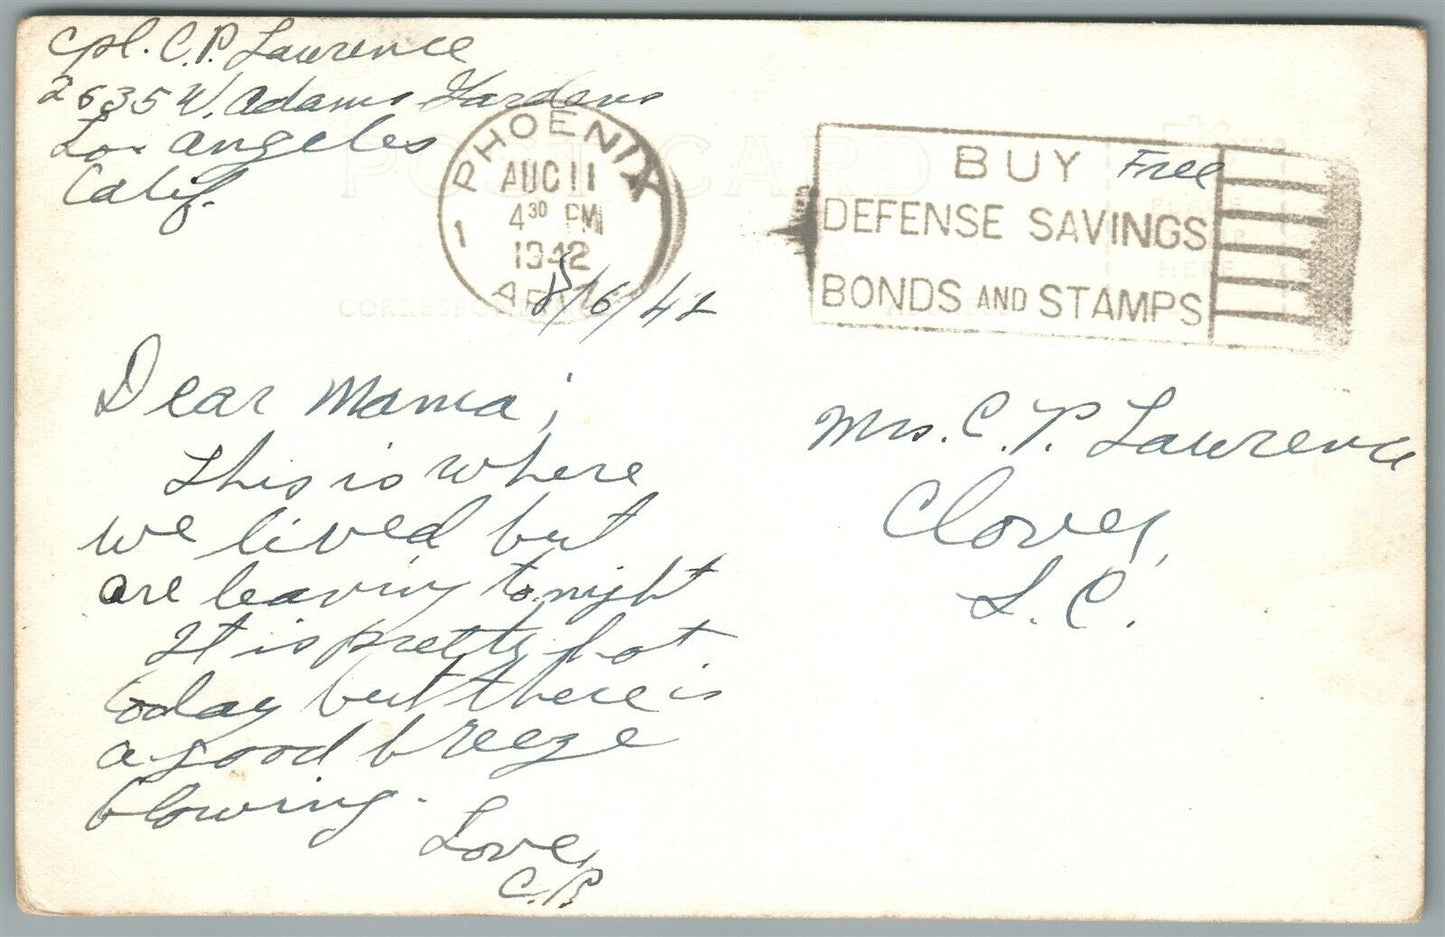 Cpl. C. P. Lawrence
2635 W. Adams Gardens
Los Angeles
Calif.
PHOENIX
AUG 11
4 30 PM
1942
1
ARIZ.
BUY
DEFENSE SAVINGS
BONDS AND STAMPS
Free
POST CARD
PLACE
HERE
CORRESPONDENCE
ADDRESS
8/6/42
Dear Mama;
This is where
we lived but
are leaving tonight
It is pretty hot
today but there is
a good breeze
blowing.
Love,
C.P.
Mrs. C. P. Lawrence
Clover,
S. C.